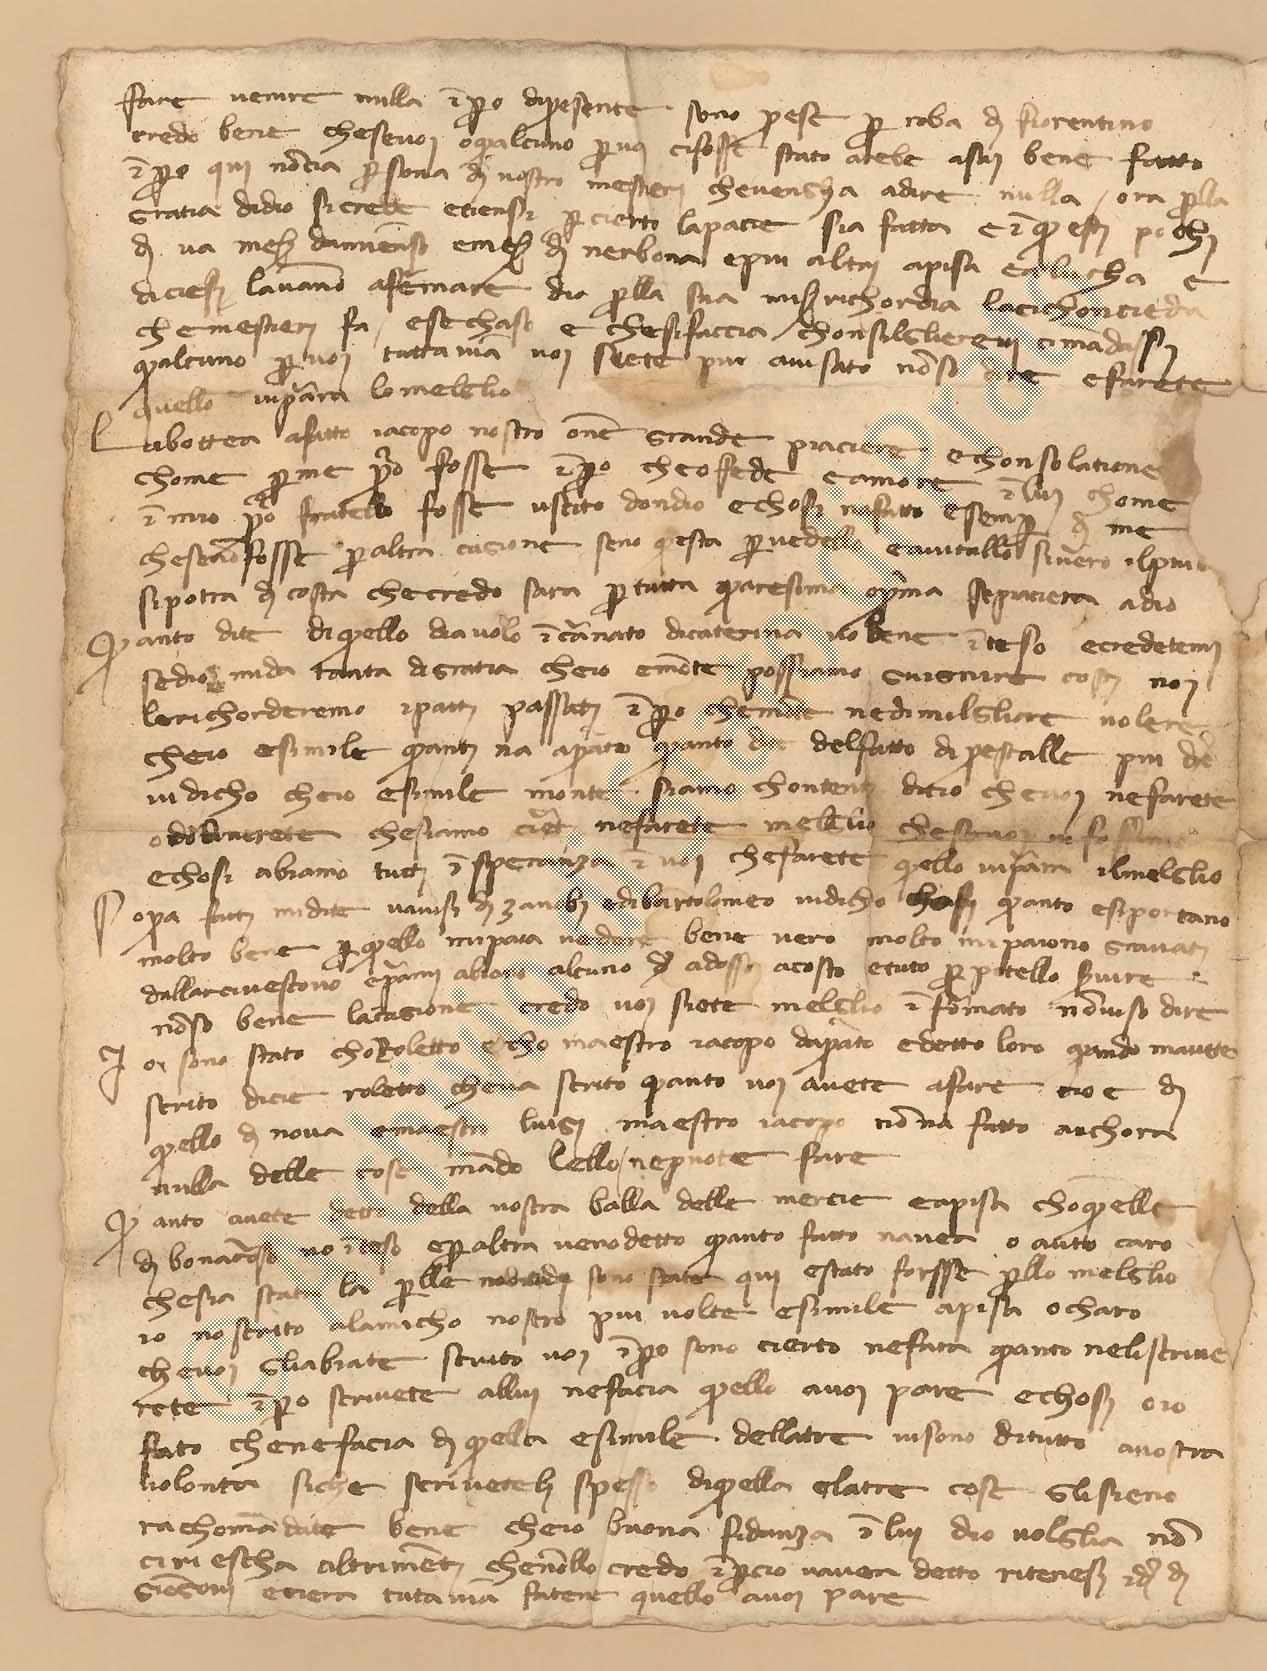 fare venire nulla īpero dipresente sono prese per roba di fiorentino
credo bene chesevoi oqalcuno pervoi cifosse stato arebe asai bene fatto
īpero qui nōcia persona di vostro mestieri chevengha adire nulla / ora perlla
gratia didio sicrede etiensi percierto lapacie sia fatta e īqesti pochi
di va meser emeser di nerbona epiu altri apisa e alucha e
diciesi lavanō afermare dio perlla sua miserichordia lacichonceda
chemestieri fa / esechaso e chesifaccia chonsilglierevi cimādasi
qalcuno pervoi tuttavia voi siete piu avisato nōso dire efarete
quello vipara lomelglio
Labottea afatto iacopo nostro onne grande piaciere echonsolatione
chome perme propio fosse īpero cheofede eamore īlui chome
īmio propio fratello fosse uscito dondio echosi nofatto esemp di me
chesenōfosse peraltra cagione seno qesta pervedello eaiutallo sivero ilpiu
sipotra di costa checredo sara pertutta qaresima oprima sepiaciera adio
Qanto dite diqello diavolo īcharnato dicaterina nobene īteso ecredetemi
sedio mida tanta digratia cheio emōte possiamo givgnire costi noi
lericorderemo ipatti passati īpero chemōte nedimilgliore volere
cheio esimile qanti na aprato qanto dite delfatto dipestalle piu dī
vidicho cheio esimile monte siamo chontenti dicio chevoi nefarete
odouincrete chesiamo certi nefarete melglio chesenoi vi fossimo
echosi abiamo tutti īsperanza ī voi chefarete qello vipara ilmelglio
Sopra fatti midite navisi di zanobi edibartolomeo vidicho chosi qanto esiportano
molto bene perqello mipara vedere bene vero molto mipaiono gravati
dallarcivescovo eprami abiano alcuno di adosso acosto etuto perpitello
nōso bene lacagione credo voi siete melglio īformato nōviso dire
Io sono stato choRoletto echo maestro iacopo daprato edetto loro qando mavete
scrito dicie roletto cheva scrito qanto voi avete afare cioe di
qello di nova emaestro luigi maestro iacopo nōna fatto anchora
nulla delle cose mādo lello / nepuote fare
Qanto avete detto della vostra balla delle mercie eapisa choqelle
di bonacorso no īteso eperaltra venodetto qanto fatto navea o auto caro
chesia stata la perlle novitadi sono state qui estato forsse perllo melglio
io noscrito alamicho nostro piu volte esimile apisa ocharo
chevoi gliabiate scrito voi īpero sono cierto nefara qanto neliscrive
rete īpero scrivete allui nefacia qello avoi pare echosi oio
fato chenefacia di qella esimile dellatre visono ditutto avostra
volonta siche scriveteli spesso diqella elatre cose glisieno
rachomādate bene cheio buona fidanza ī lui dio volglia nō
ciriescha altrimēti chenōllo credo īpercio navea detto ritenesi
etiera tutavia fatene quello avoi pare